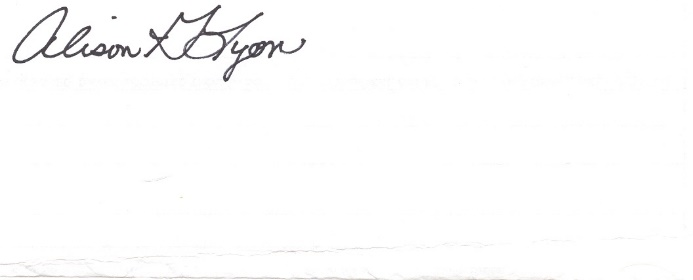 Alison L G Lyon